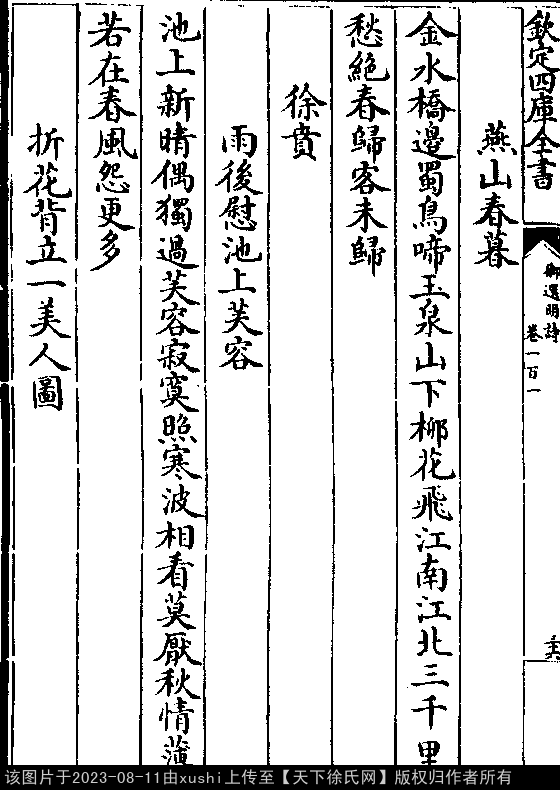 欽定四庫全書
御選明詩
卷一百一
燕山春暮
金水橋邊蜀鳥啼玉泉山下柳花飛江南江北三千里
愁絶春歸客未歸
徐賁
雨後慰池上芙容
池上新晴偶獨過芙容寂寞照寒波相看莫厭秋情薄
若在春風怨更多
折花背立一美人圖
该图片于2023-08-11由xushi上传至【天下徐氏网】版权归作者所有